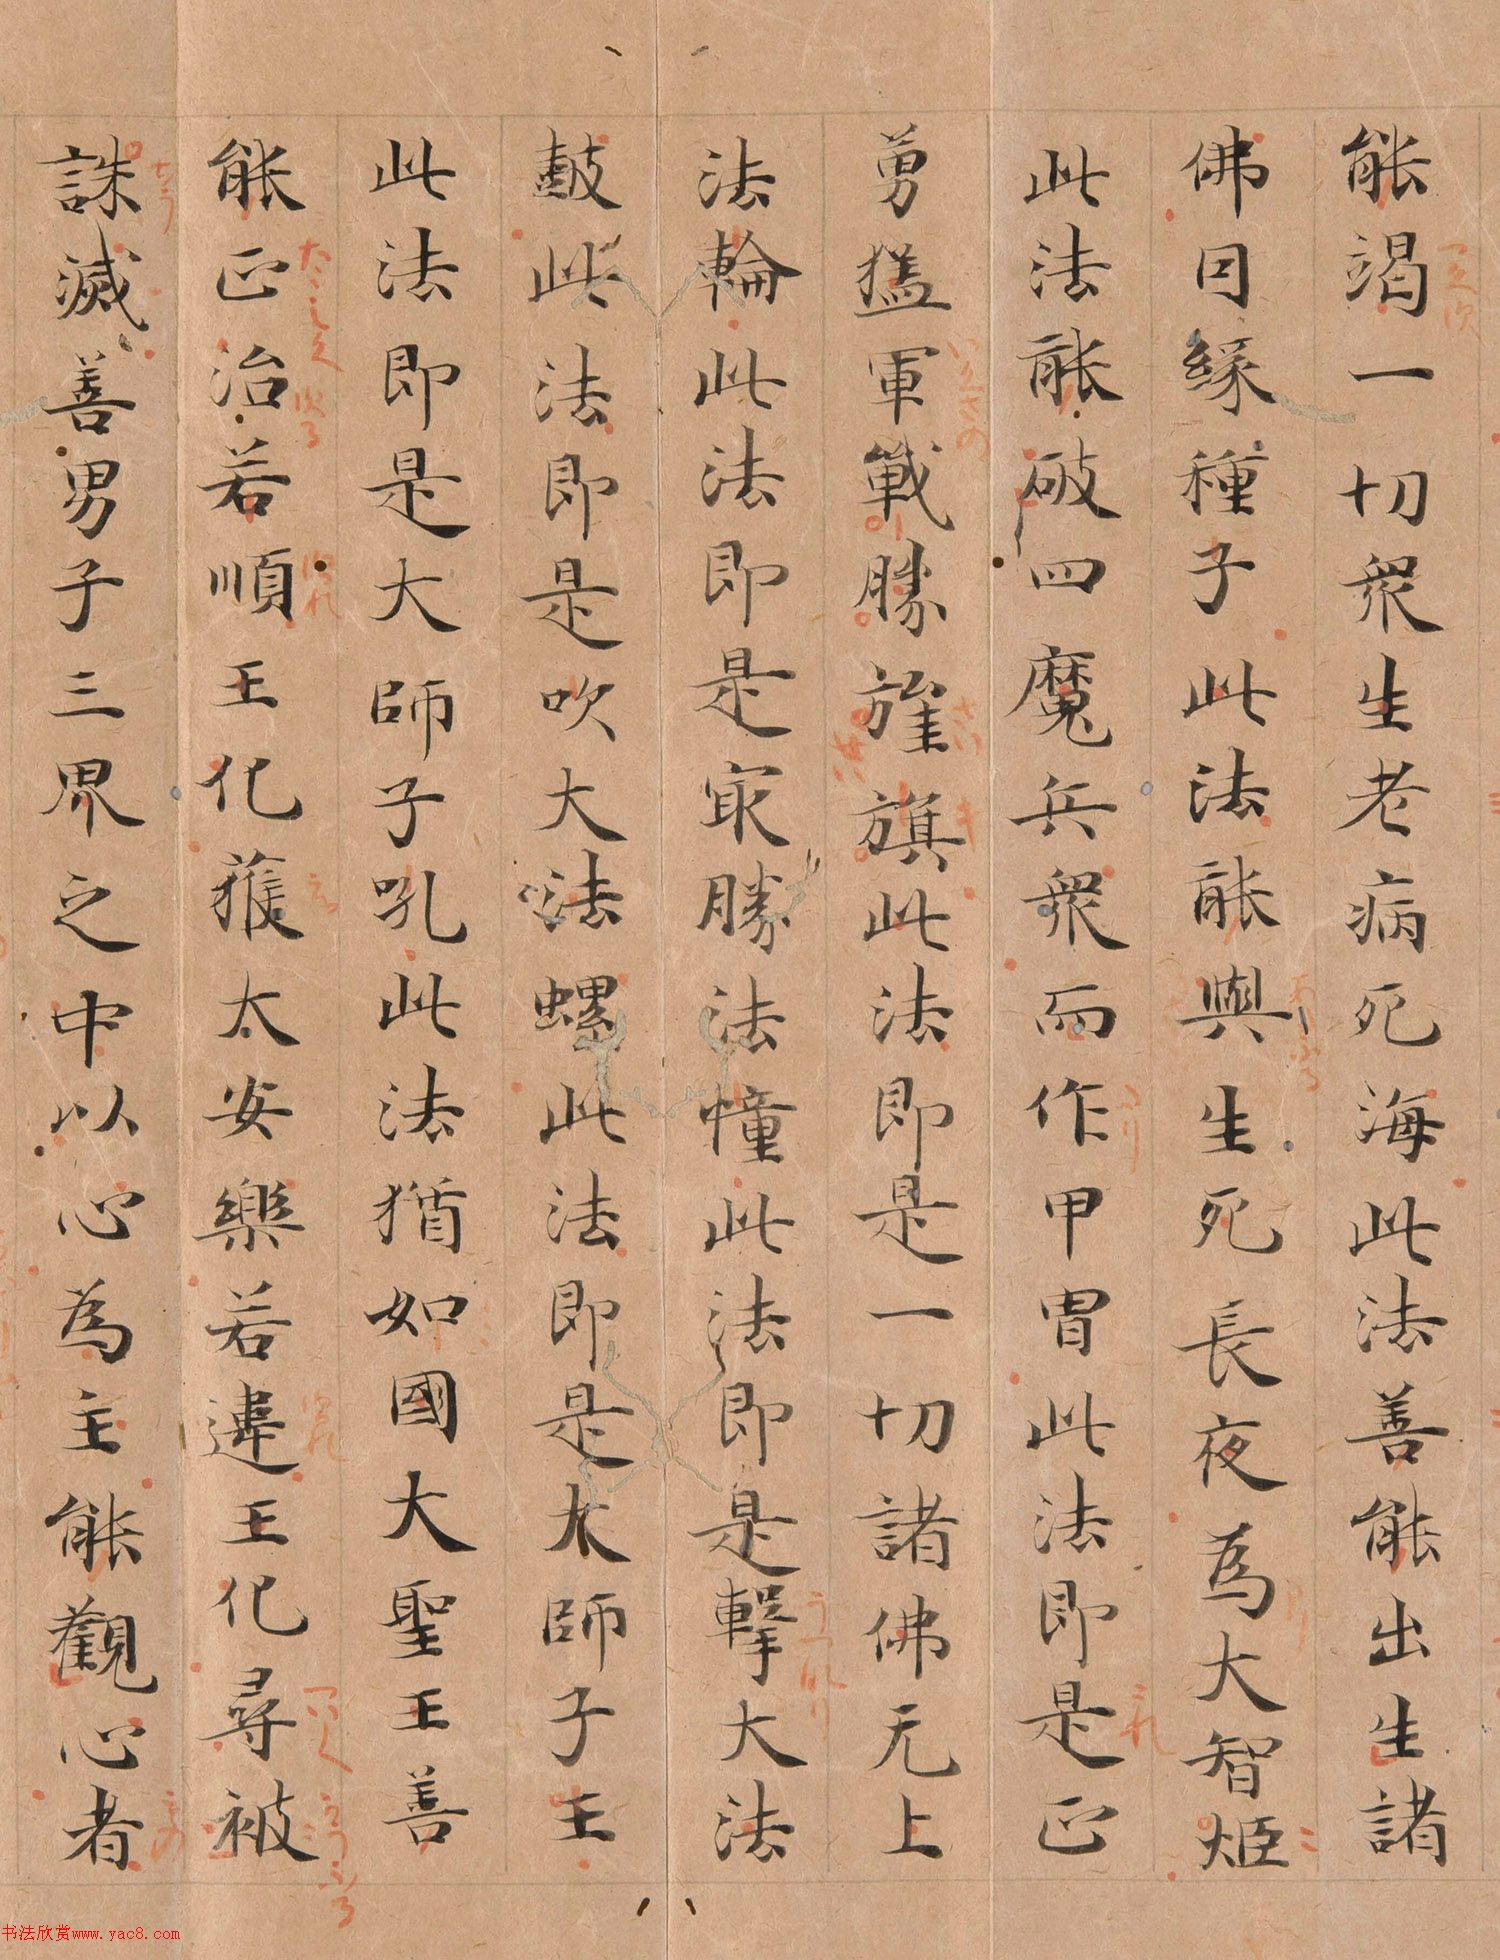 能竭一切衆生老病死海此法善能出生諸
佛因緣種子此法能與生死長夜為大智炬
此法能破四魔兵衆而作甲冑此法即是正
勇猛軍戰勝旌旗此法即是一切諸佛无上
法輪此法即是㝡勝法幢此法即是擊大法
鼓此法即是吹大法螺此法即是大師子王
此法即是大師子吼此法猶如國大聖王善
能正治若順王化獲大安樂若違王化尋被
誅滅善男子三界之中以心為主能觀心者
书法欣赏www.yac8.com